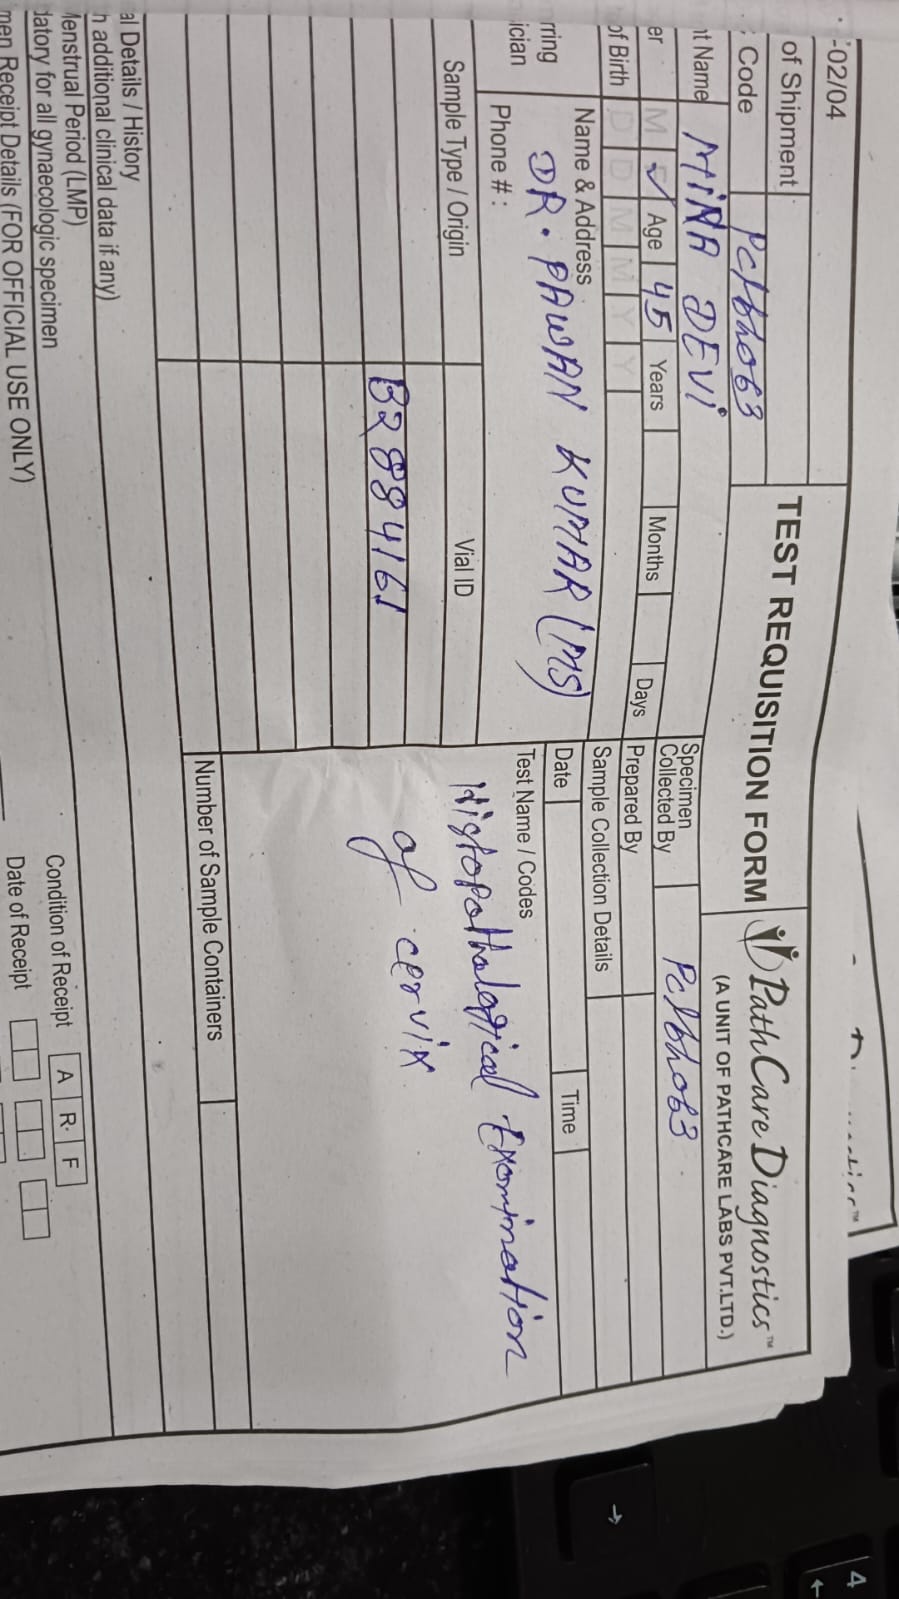 -02/04
TEST REQUISITION FORM
PathCare Diagnostics™
(A UNIT OF PATHCARE LABS PVT.LTD.)
of Shipment
Code Pclbho63
nt Name MiNA DEVi
er M ✓ Age 45 Years Months Days
of Birth D D M M Y Y
Specimen Collected By Pclbho63
Prepared By
Sample Collection Details
Date Time
rring
ician
Name & Address
DR. PAWAN KUMAR (MS)
Phone # :
Sample Type / Origin Vial ID
B2884161
Test Name / Codes
Histopathological Examination
of cervix
Number of Sample Containers
al Details / History
h additional clinical data if any)
Menstrual Period (LMP)
datory for all gynaecologic specimen
men Receipt Details (FOR OFFICIAL USE ONLY)
Condition of Receipt A R F
Date of Receipt
4